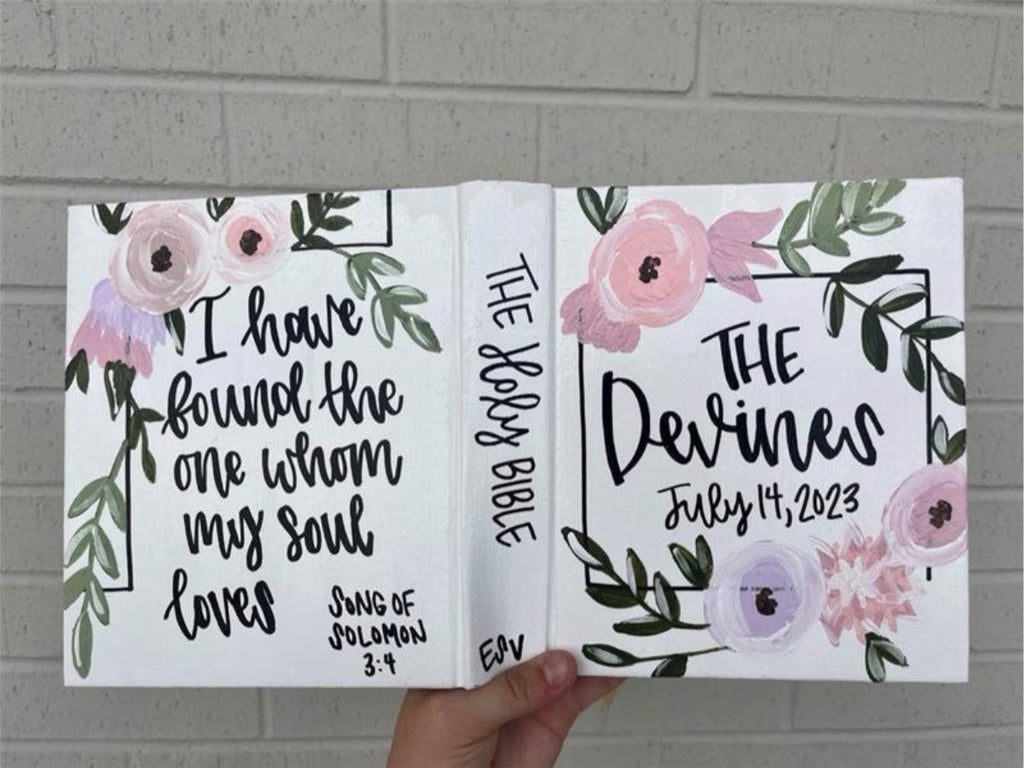 I have
found the
one whom
my soul
loves
SONG OF
SOLOMON
3:4
THE Holy BIBLE
ESV
THE
Devines
July 14, 2023